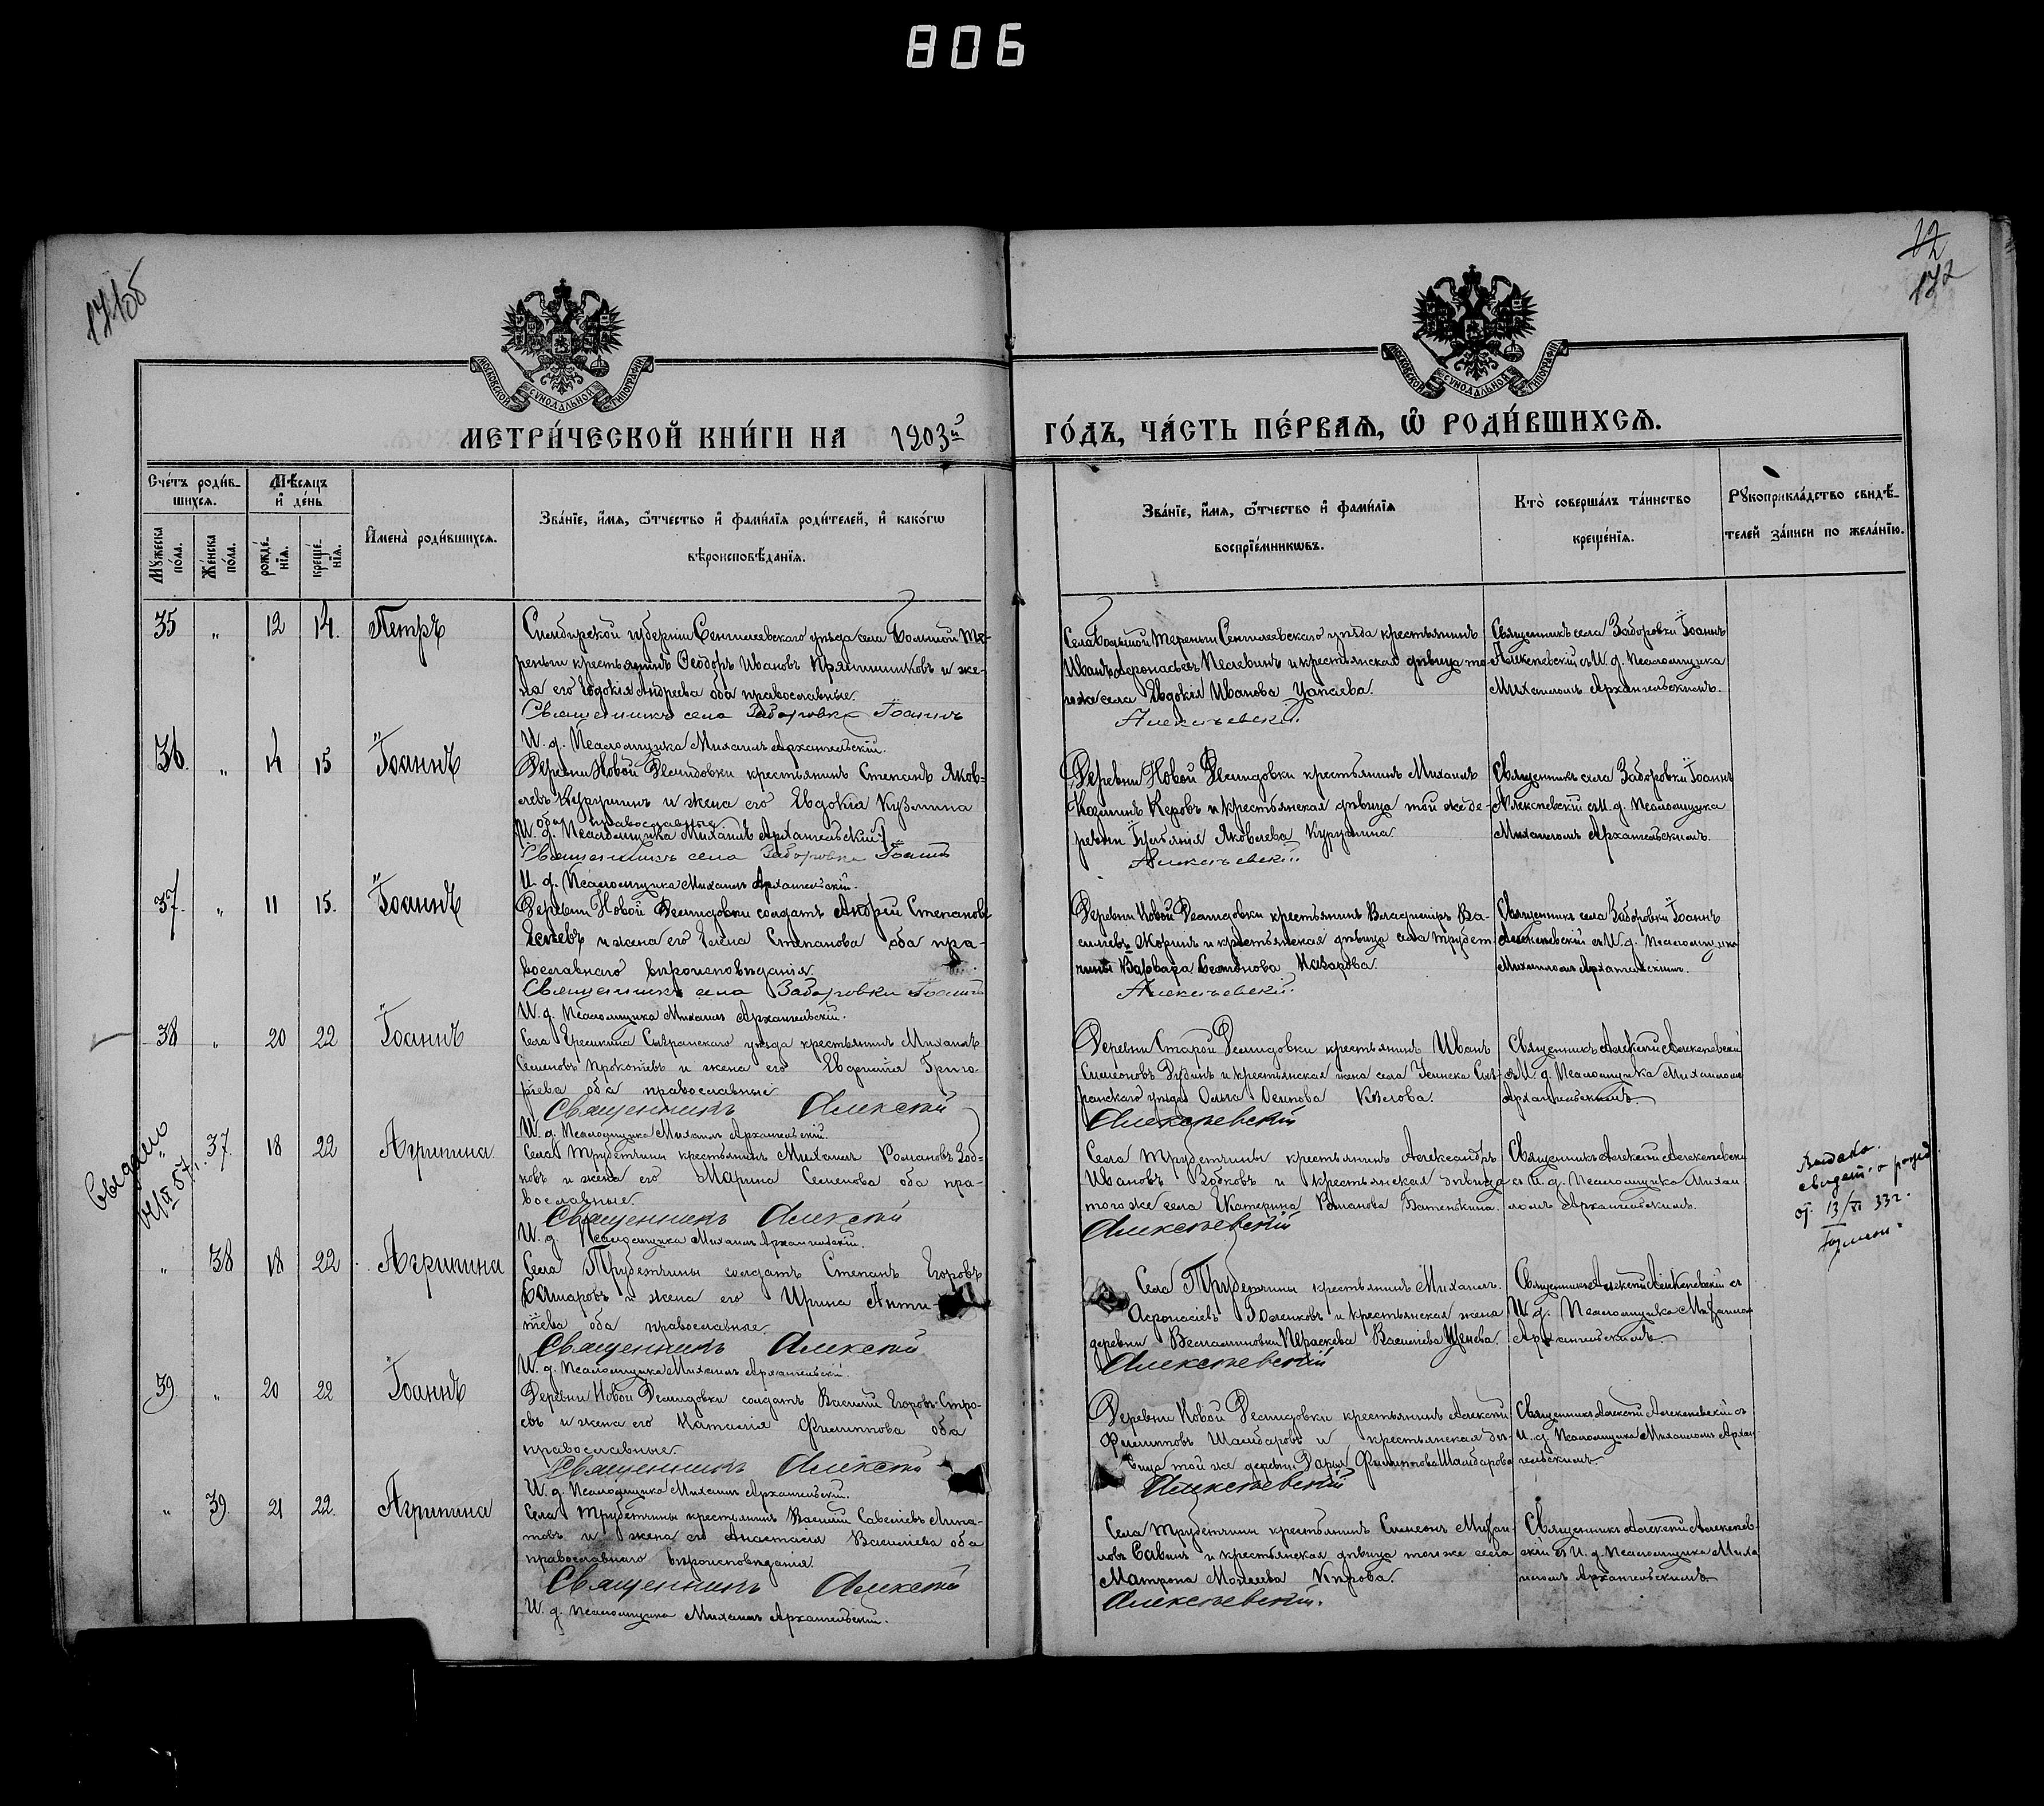 806
171об
12
172
МОСКОВСКОЙ СѴНОДАЛЬНОЙ ТИПОГРАФІИ
МОСКОВСКОЙ СѴНОДАЛЬНОЙ ТИПОГРАФІИ
МЕТРИ́ЧЕСКОЙ КНИ́ГИ НА 1903й
ГО́ДЪ, ЧА́СТЬ ПЕ́РВАЯ, Ѡ РОДИ́ВШИХСЯ.
Счетъ родив-
шихся.
Мужеска
пола.
Женска
пола.
Мѣсяцъ
и день
рожде-
нія.
креще-
нія.
Имена родившихся.
Званіе, имя, ѿчество и фамилія родителей, и какогѡ
вѣроисповѣданія.
Званіе, имя, ѿчество и фамилія
воспріемникѡвъ.
Кто совершалъ таинство
крещенія.
Рукоприкладство свидѣ-
телей записи по желанію.
35 „ 12 14. Петръ
Симбирской губерніи Сенгилеевскаго уѣзда села Большой Те-
реньги крестьянинъ Ѳеодоръ Ивановъ Прянишниковъ и же-
на его Евдокія Андреева оба православные.
Священникъ села Заборовки Іоаннъ
И. д. Псаломщика Михаилъ Архангельскій.
Села Большой Тереньги Сенгилеевскаго уѣзда крестьянинъ
Иванъ Аѳонасьевъ и крестьянская дѣвица то-
гоже села Евдокія Иванова
Алексѣевскій.
Священникъ села Заборовки Іоаннъ
Алексѣевскій съ И. д. Псаломщика
Михаиломъ Архангельскимъ.
36. „ 14 15 Іоаннъ
Деревни Новой Демидовки крестьянинъ Степанъ Яков-
левъ Курушинъ и жена его Евдокія Кузмина
оба православные
И. д. Псаломщика Михаилъ Архангельскій
Священникъ села Заборовки Іоаннъ
И. д. Псаломщика Михаилъ Архангельскій.
Деревни Новой Демидовки крестьянинъ Михаилъ
Козминъ Керовъ и крестьянская дѣвица той же де-
ревни Яковлева Курушина
Алексѣевскій
Священникъ села Заборовки Іоаннъ
Алексѣевскій съ И. д. Псаломщика
Михаиломъ Архангельскимъ.
37. „ 11 15. Іоаннъ
Деревни Новой Демидовки солдатъ Андрей Степановъ
и жена его Елена Степанова оба пра-
вославнаго вѣроисповѣданія.
Священникъ села Заборовки Іоаннъ
И. д. Псаломщика Михаилъ Архангельскій.
Деревни Новой Демидовки крестьянинъ Владиміръ Ва-
сильевъ Жоринъ и крестьянская дѣвица села Трубет-
чины Варвара Назарова.
Алексѣевскій.
Священникъ села Заборовки Іоаннъ
Алексѣевскій съ И. д. Псаломщика
Михаиломъ Архангельскимъ.
38 „ 20 22 Іоаннъ
Села Сызранскаго уѣзда крестьянинъ Михаилъ
Семеновъ Прокофьевъ и жена его Григо-
рьева оба православные
Священникъ Алексій
И. д. Псаломщика Михаилъ Архангельскій.
Деревни Старой Демидовки крестьянинъ Иванъ
Симеоновъ и крестьянская жена села Усинска Сыз-
ранскаго уѣзда Ольга Осипова Козлова.
Алексѣевскій
Священникъ Алексій Алексѣевскій
съ И. д. Псаломщика Михаиломъ
Архангельскимъ.
Выдано
„ 37. 18 22 Агрипина
Села Трубетчины крестьянинъ Михаилъ Романовъ Зоб-
ковъ и жена его Марина Семенова оба пра-
вославные.
Священникъ Алексій
И. д. Псаломщика Михаилъ Архангельскій.
Села Трубетчины крестьянинъ Александръ
Ивановъ Зобковъ и крестьянская дѣвица
тогоже села Екатерина Батенькина.
Алексѣевскій
Священникъ Алексій Алексѣевскій
съ И. д. Псаломщика Михаи-
ломъ Архангельскимъ.
Выдано
свидет. о рожд
от 13/XI 33г.
„ 38 18 22 Агрипина
Села Трубетчины солдатъ Степанъ Егоровъ
и жена его Ирина Анти-
пьева оба православные.
Священникъ Алексій
И. д. Псаломщика Михаилъ Архангельскій.
Села Трубетчины крестьянинъ Михаилъ
Аѳонасіевъ и крестьянская жена
деревни Параскева Васильева
Алексѣевскій
Священникъ Алексій Алексѣевскій съ
И. д. Псаломщика Михаиломъ
Архангельскимъ
39 „ 20 22 Іоаннъ
Деревни Новой Демидовки солдатъ Василій Егоровъ Стро-
евъ и жена его Наталія Филиппова оба
православные.
Священникъ Алексій
И. д. Псаломщика Михаилъ Архангельскій.
Деревни Новой Демидовки крестьянинъ Алексѣй
Филипповъ Шамбаровъ и крестьянская дѣ-
вица той же деревни Дарья Филиппова Шамбарова
Алексѣевскій
Священникъ Алексій Алексѣевскій съ
И. д. Псаломщика Михаиломъ Архан-
гельскимъ
„ 39. 21 22. Агрипина
Села Трубетчины крестьянинъ Василій Савельевъ Липа-
товъ и жена его Анастасія Васильева оба
православнаго вѣроисповѣданія.
Священникъ Алексій
И. д. Псаломщика Михаилъ Архангельскій.
Села Трубетчины крестьянинъ Симеонъ Михаи-
ловъ Савинъ и крестьянская дѣвица тогоже села
Матрона Моисеева Кирова.
Алексѣевскій.
Священникъ Алексій Алексѣев-
скій съ И. д. Псаломщика Миха-
иломъ Архангельскимъ